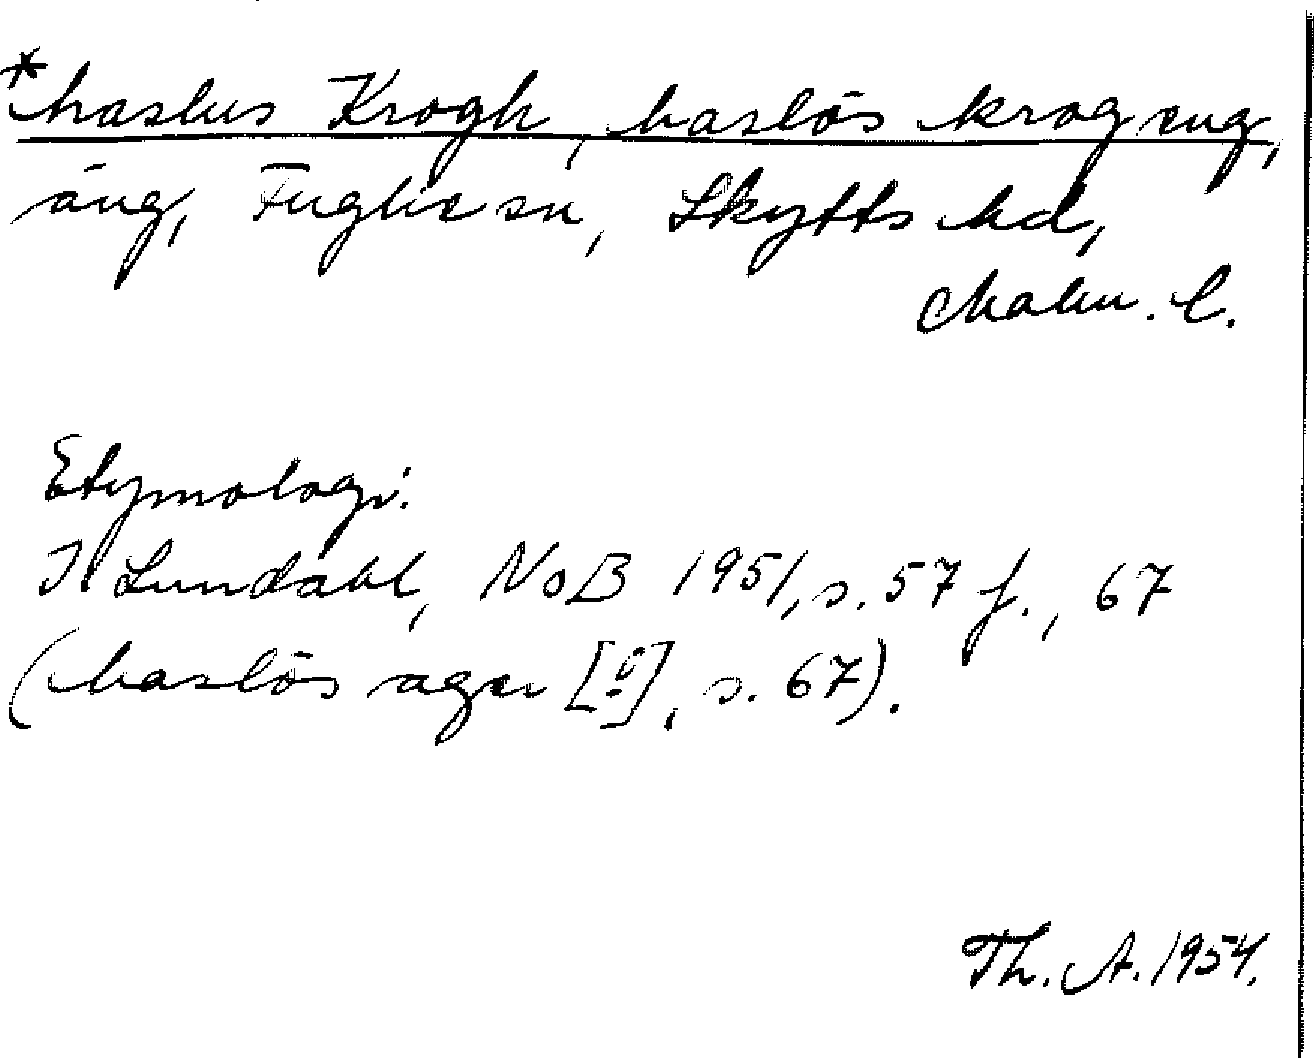 *haslus Krogh, haslös krog eng,
äng, Fuglie sn, Skytts hd,
Malm. l.
Etymologi:
I. Lundahl, NoB 1951, s. 57 f., 67
(haslös ager [o], s. 67).
Th. A. 1954.